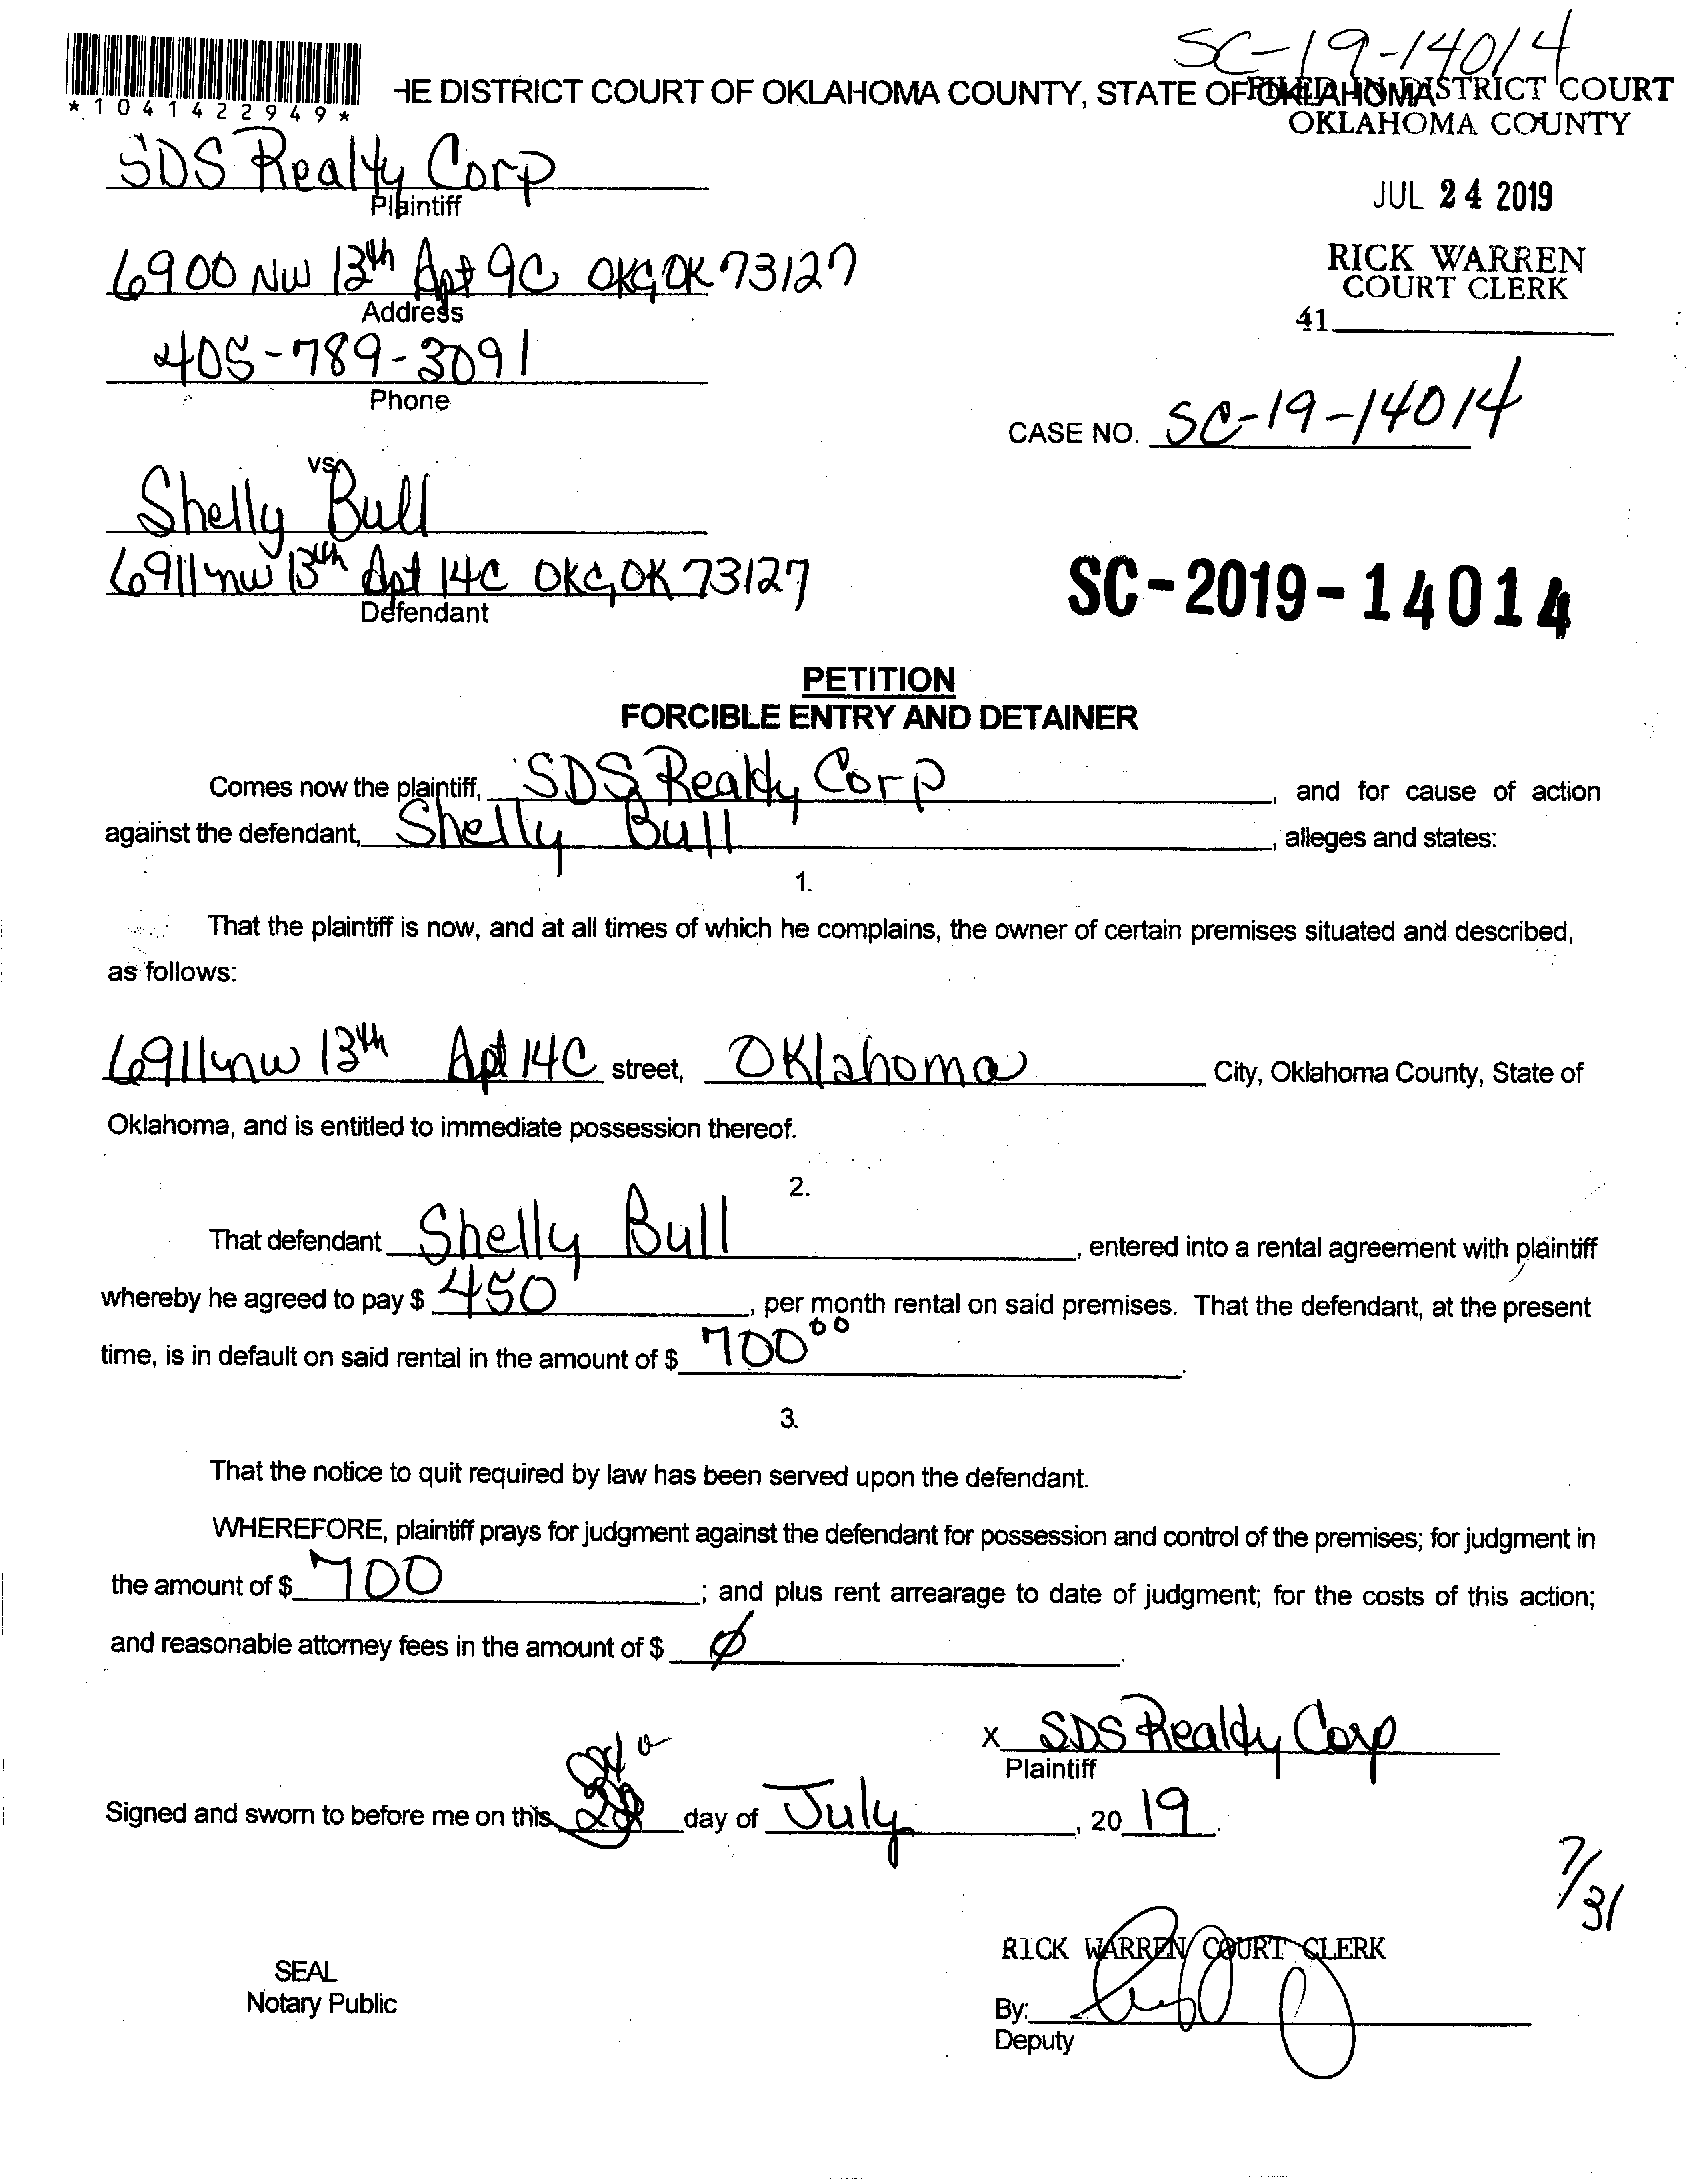 SC-19-14014
*1041422949*
HE DISTRICT COURT OF OKLAHOMA COUNTY, STATE OF OKLAHOMA
FILED IN DISTRICT COURT
OKLAHOMA COUNTY
SDS Realty Corp
Plaintiff
JUL 24 2019
6900 NW 13th Apt 9C OKC, OK 73127
Address
RICK WARREN
COURT CLERK
41
405-789-3091
Phone
CASE NO. SC-19-14014
vs
Shelly Bull
6911 nw 13th Apt 14C OKC, OK 73127
Defendant
SC-2019-14014
PETITION
FORCIBLE ENTRY AND DETAINER
Comes now the plaintiff, SDS Realty Corp, and for cause of action
against the defendant, Shelly Bull, alleges and states:
1.
That the plaintiff is now, and at all times of which he complains, the owner of certain premises situated and described,
as follows:
6911 nw 13th Apt 14C street, Oklahoma City, Oklahoma County, State of
Oklahoma, and is entitled to immediate possession thereof.
2.
That defendant Shelly Bull, entered into a rental agreement with plaintiff
whereby he agreed to pay $ 450, per month rental on said premises. That the defendant, at the present
time, is in default on said rental in the amount of $ 700 00.
3.
That the notice to quit required by law has been served upon the defendant.
WHEREFORE, plaintiff prays for judgment against the defendant for possession and control of the premises; for judgment in
the amount of $ 700; and plus rent arrearage to date of judgment; for the costs of this action;
and reasonable attorney fees in the amount of $ ∅.
X SDS Realty Corp
Plaintiff
Signed and sworn to before me on this 24 day of July, 2019.
7/31
RICK WARREN COURT CLERK
SEAL
Notary Public
By:
Deputy